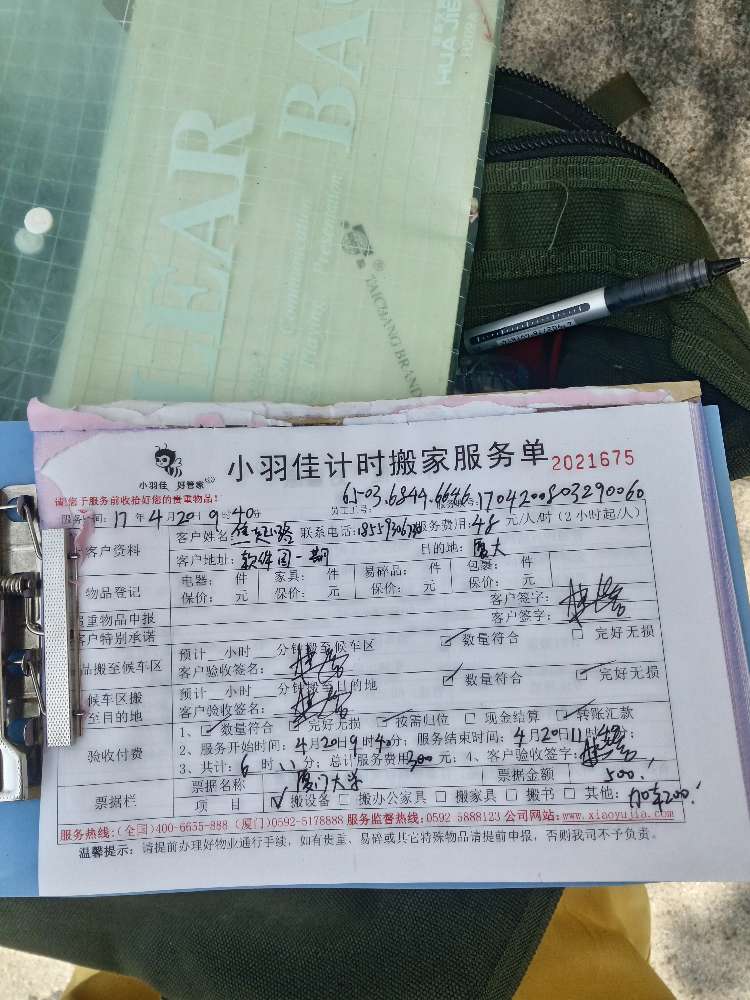 HUA JIE
CLEAR
BAG
TAICHANG BRAND
小羽佳 好管家
小羽佳计时搬家服务单 2021675
请您于服务前收拾好您的贵重物品！
6503.6844.6646
服务时间：17年4月20日9时40分 员工工号： 服务账号：1704200803290060
客户资料
客户姓名： 联系电话： 服务费用：48元/人/时（2小时起/人）
客户地址：软件园一期 目的地：厦大
物品登记
电器： 件 家具： 件 易碎品： 件 包裹： 件
保价： 元 保价： 元 保价： 元 保价： 元
客户签字：
贵重物品申报
客户签字：
客户特别承诺
物品搬至候车区
预计 小时 分钟搬至候车区 数量符合 完好无损
客户验收签名：
候车区搬至目的地
预计 小时 分钟搬至目的地 数量符合 完好无损
客户验收签名：
验收付费
1、 数量符合 完好无损 按需归位 现金结算 转账汇款
2、服务开始时间：4月20日9时40分；服务结束时间：4月20日11时
3、共计：6时 分；总计服务费用300元；4、客户验收签字：
票据栏
票据名称 厦门大学 票据金额 500.
项 目 搬设备 搬办公家具 搬家具 搬书 其他：加车200.
服务热线：(全国)400-6655-888 (厦门)0592-5178888 服务监督热线：0592 5888123 公司网站：www.xiaoyujia.com
温馨提示：请提前办理好物业通行手续，如有贵重、易碎或其它特殊物品请提前申报，否则我司不予负责。